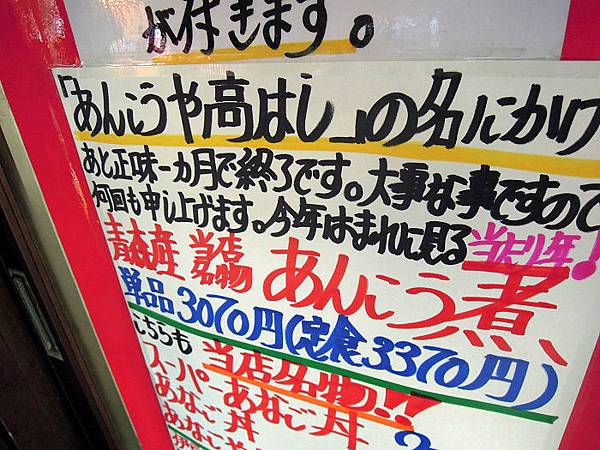 が付きます。
「あんこうや高はし」の名にかけ
あと正味一カ月で終了です。大事な事ですので
何回も申し上げます。今年はまれに見る当たり年!
青森産 当店名物 あんこう煮、
単品3070円(定食3370円)
こちらも 当店名物!!
スーパーあなご丼
あなご丼